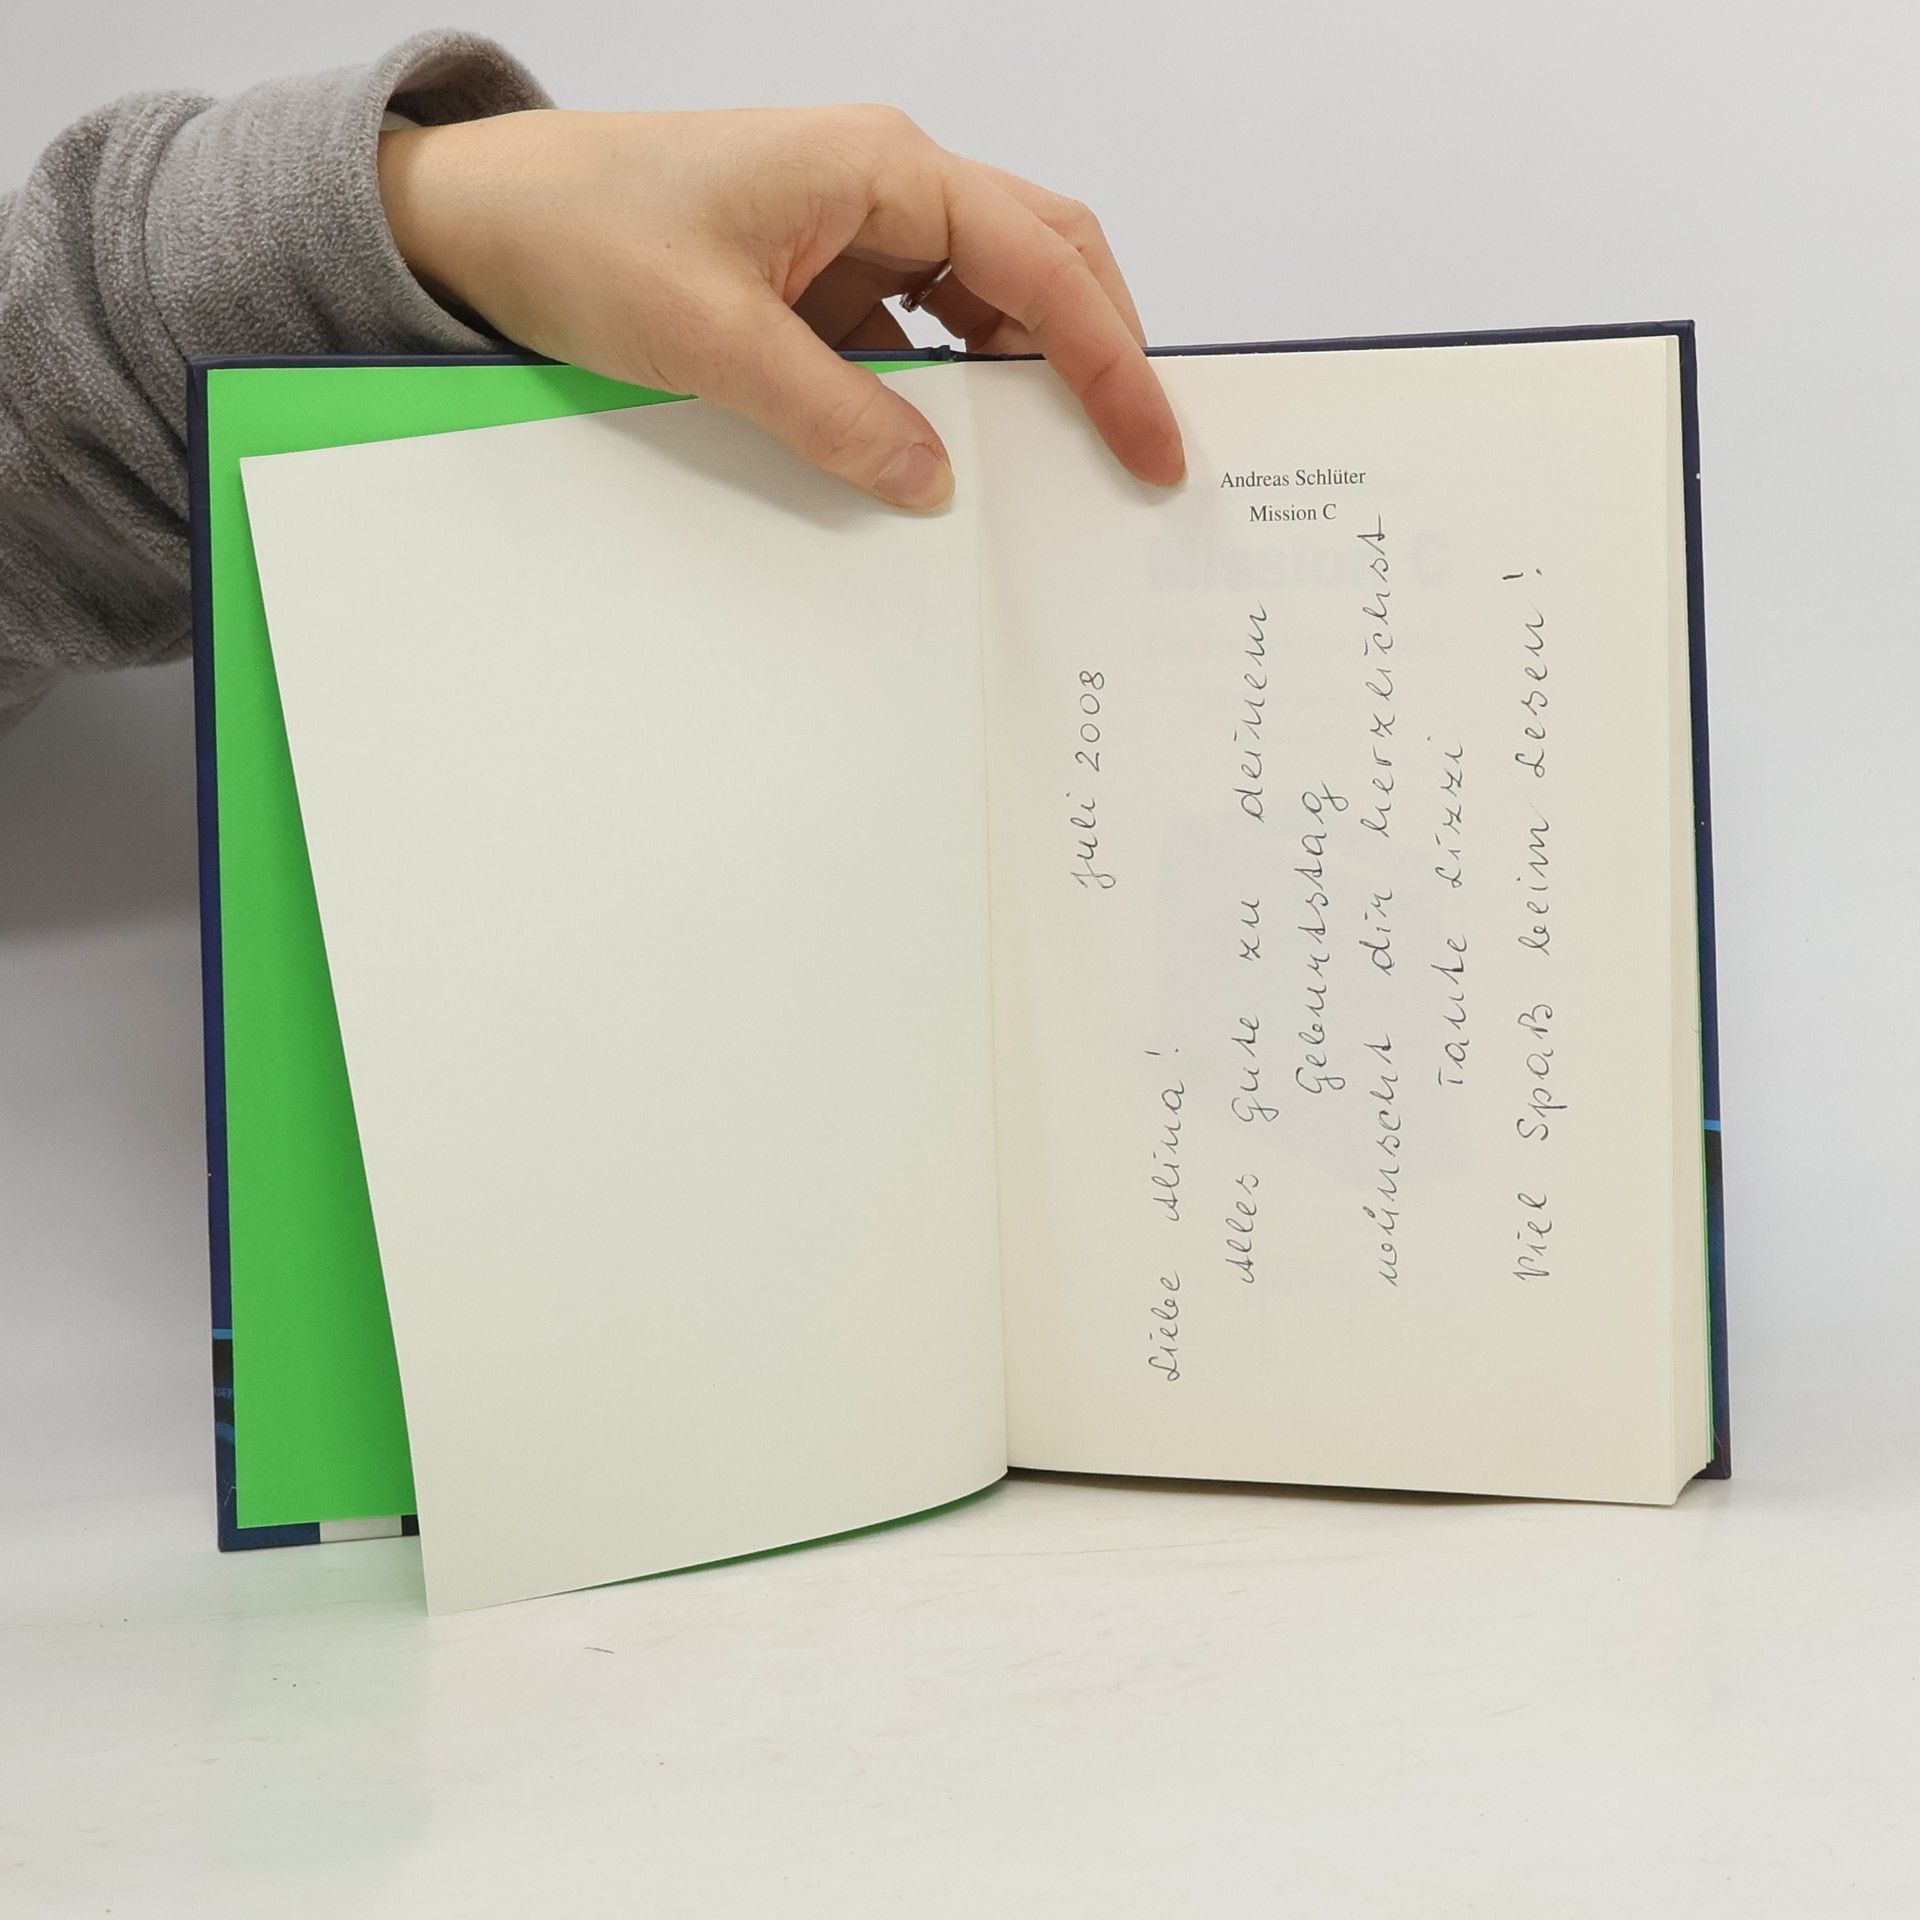 Andreas Schlüter
Mission C
Juli 2008
Liebe Alina!
Alles Gute zu deinem
Geburtstag
wünscht dir herzlichst
Tante Lizzi
Viel Spaß beim Lesen!